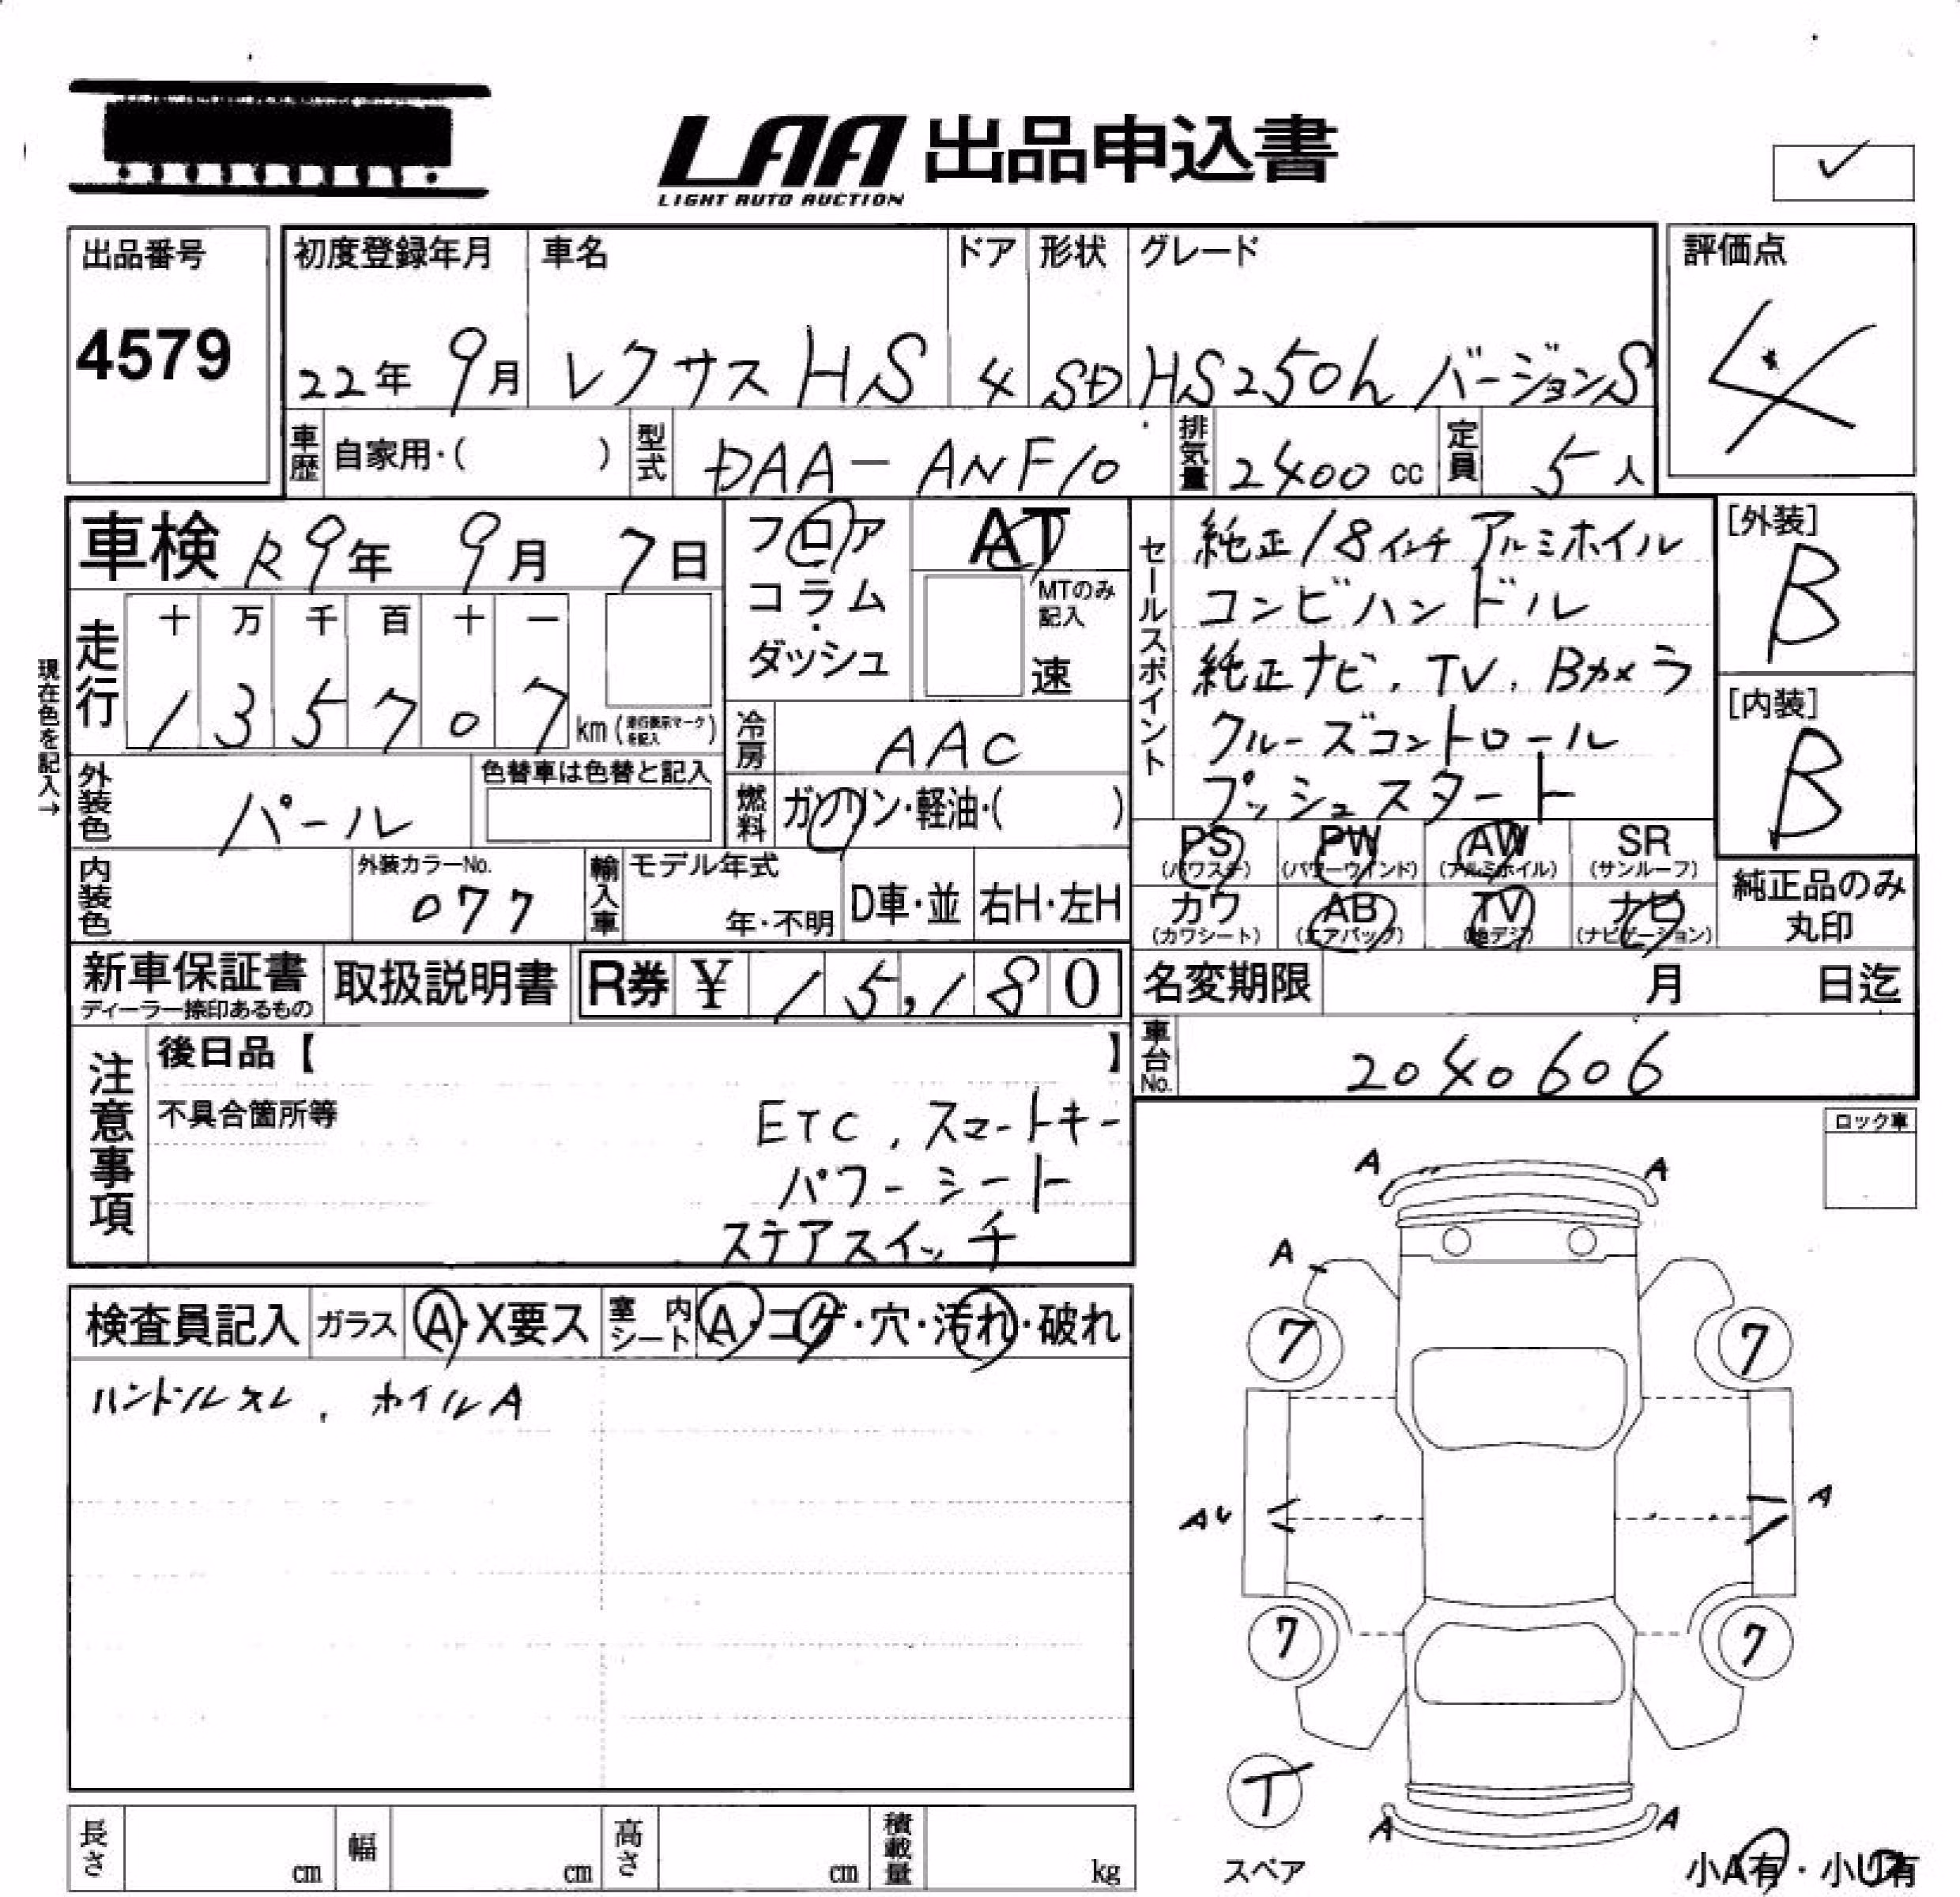 LAA 出品申込書
LIGHT AUTO AUCTION
✓
出品番号
4579
初度登録年月 車名 ドア 形状 グレード
22年 9月 レクサス HS 4 SD HS250h バージョンS
評価点
4
車歴 自家用・( ) 型式 DAA-ANF10 排気量 2400 cc 定員 5人
車検 R9年 9月 7日
フロア
コラム
・
ダッシュ
AT
MTのみ
記入
速
セールスポイント
純正18インチアルミホイル
コンビハンドル
純正ナビ, TV, Bカメラ
クルーズコントロール
プッシュスタート
[外装]
B
[内装]
B
現在色を記入→
走行 十 万 千 百 十 一
1 3 5 7 0 7 km (走行表示マークを記入)
冷房 AAC
外装色 パール 色替車は色替と記入
燃料 ガソリン・軽油・( )
PS (パワステ) PW (パワーウインド) AW (アルミホイル) SR (サンルーフ)
カワ (カワシート) AB (エアバッグ) TV (地デジ) ナビ (ナビゲーション)
純正品のみ
丸印
内装色 外装カラーNo. 077 輸入車 モデル年式 年・不明 D車・並 右H・左H
新車保証書
ディーラー捺印あるもの
取扱説明書 R券 ¥ 15,180
名変期限 月 日迄
車台No. 2040606
注意事項
後日品【 】
不具合箇所等
ETC, スマートキー
パワーシート
ステアスイッチ
ロック車
検査員記入 ガラス A・X要ス 室内シート A・コゲ・穴・汚れ・破れ
ハンドルスレ, ホイルA
A A
A
7 7
AU A
7 7
T
スペア
A A
小A有・小U有
長さ cm 幅 cm 高さ cm 積載量 kg